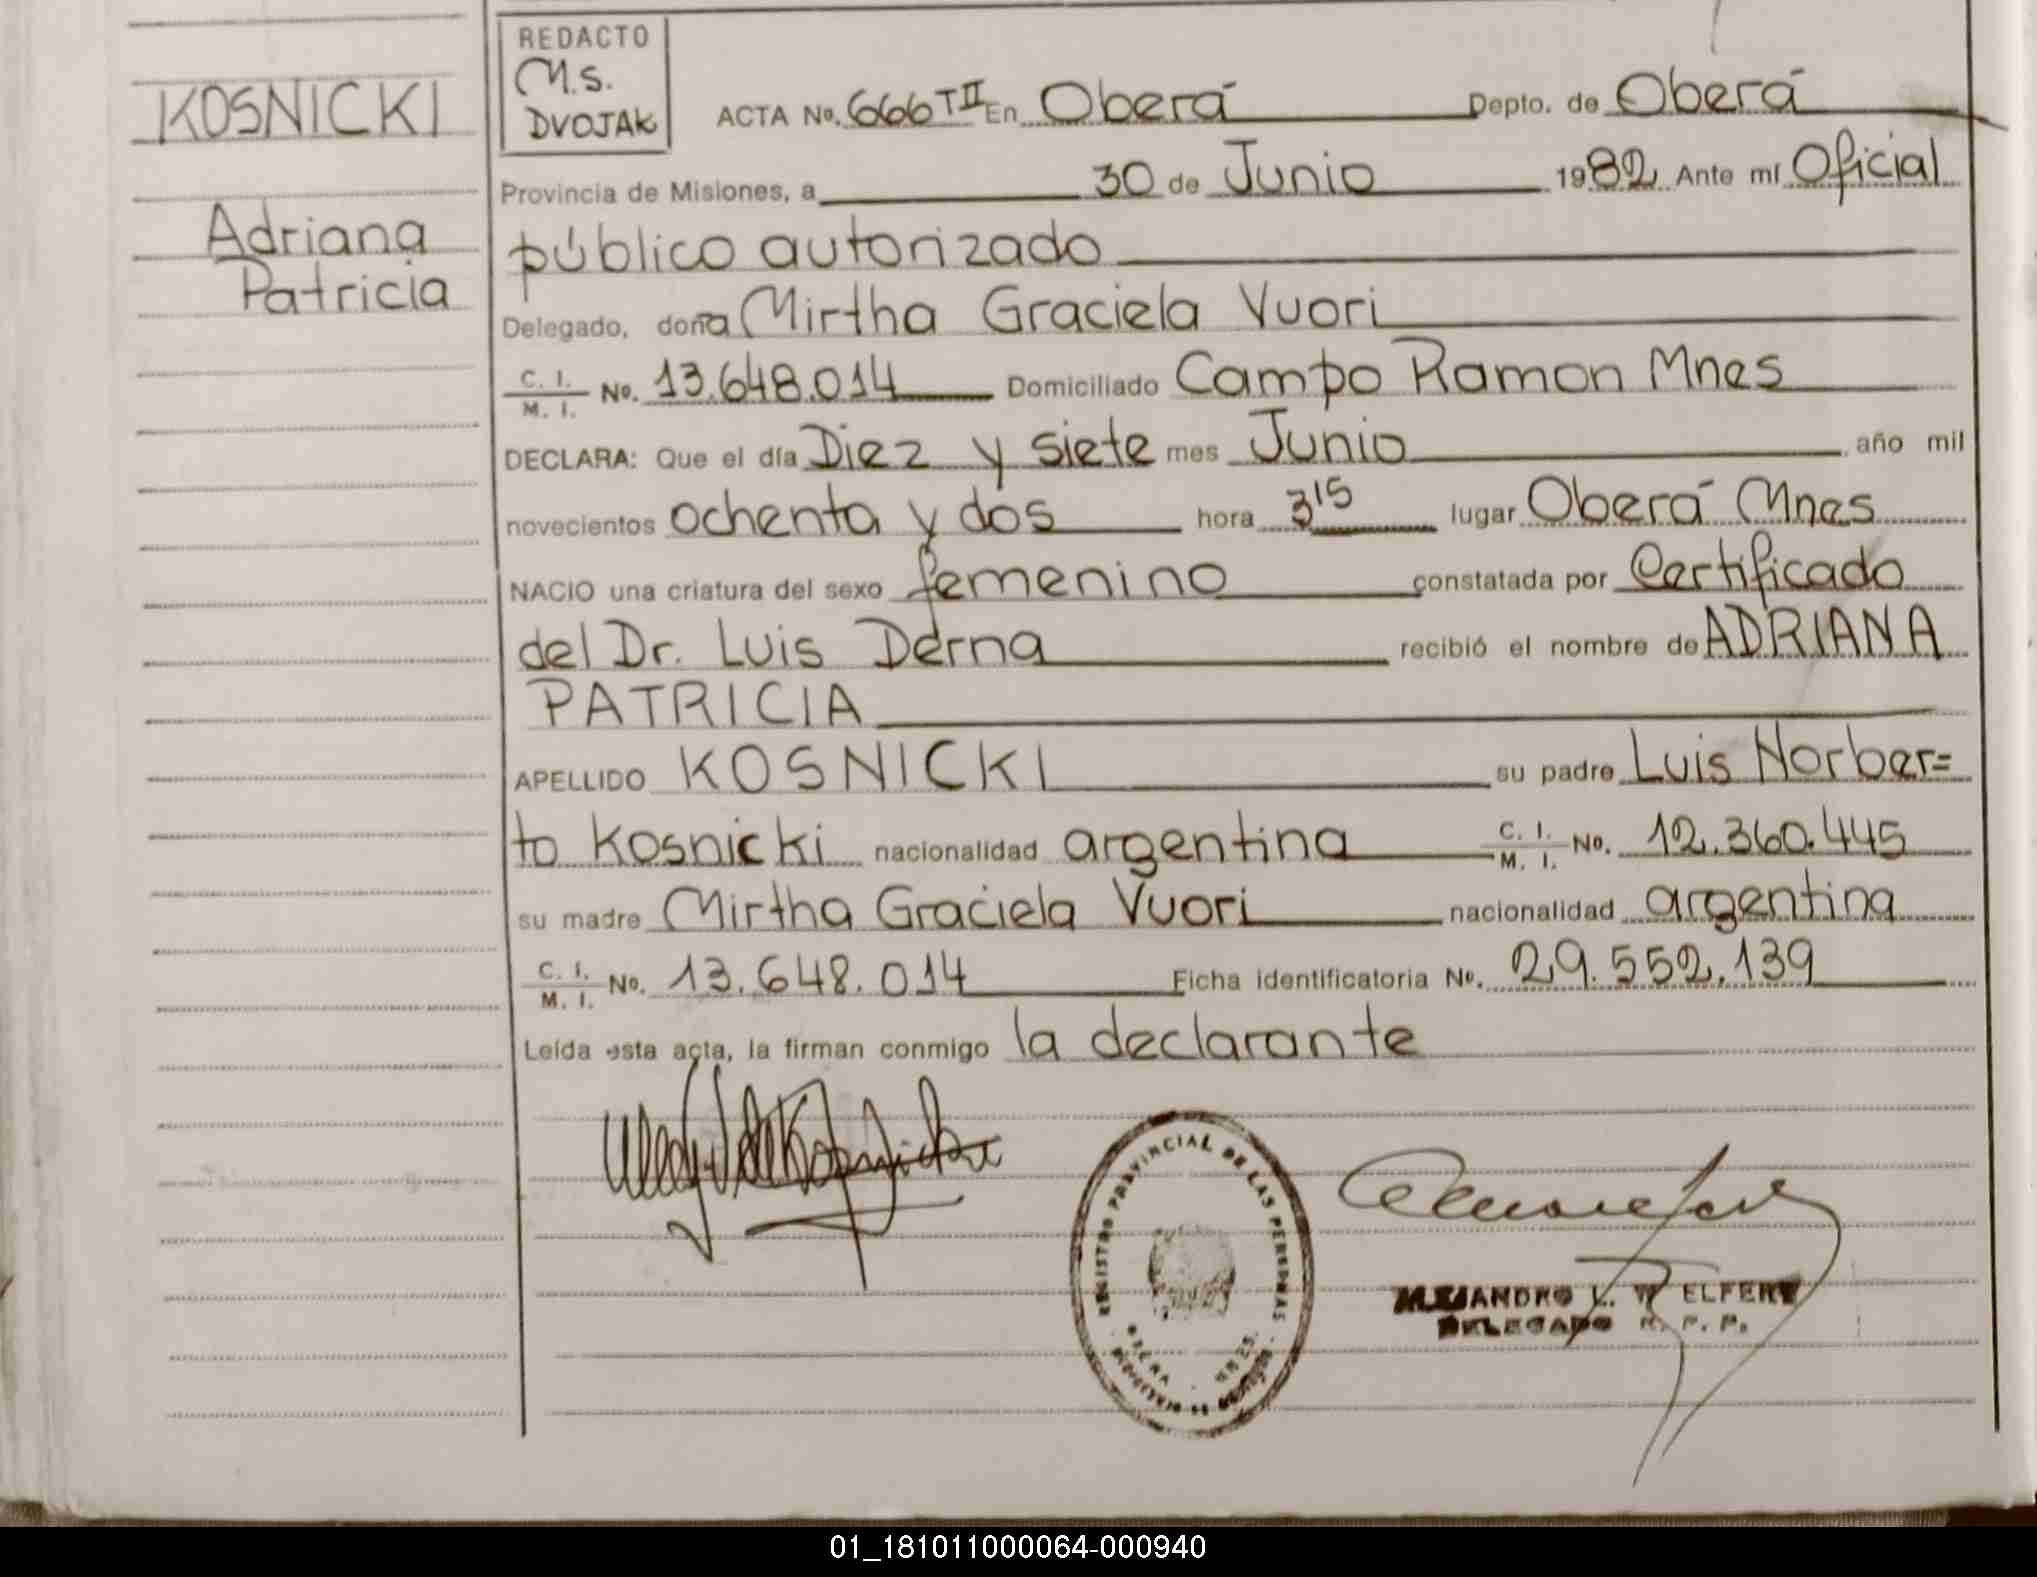 KOSNICKI
Adriana
Patricia
REDACTO
M.S.
DVOJAK
ACTA No. 666 T II En Oberá Depto. de Oberá
Provincia de Misiones, a 30 de Junio 1982 Ante mí Oficial
público autorizado
Delegado, doña Mirtha Graciela Vuori
C. I. / M. I. No. 13.648.014 Domiciliado Campo Ramon Mnes
DECLARA: Que el día Diez y siete mes Junio año mil
novecientos ochenta y dos hora 3 15 lugar Oberá Mnes
NACIO una criatura del sexo femenino constatada por Certificado
del Dr. Luis Derna recibió el nombre de ADRIANA
PATRICIA
APELLIDO KOSNICKI su padre Luis Norber=
to Kosnicki nacionalidad argentina C. I. / M. I. No. 12.360.445
su madre Mirtha Graciela Vuori nacionalidad argentina
C. I. / M. I. No. 13.648.014 Ficha identificatoria No. 29.552.139
Leída esta acta, la firman conmigo la declarante
REGISTRO PROVINCIAL DE LAS PERSONAS
OBERA MNES.
ALEJANDRO L. W ELFERT
DELEGADO R. P. P.
01_181011000064-000940